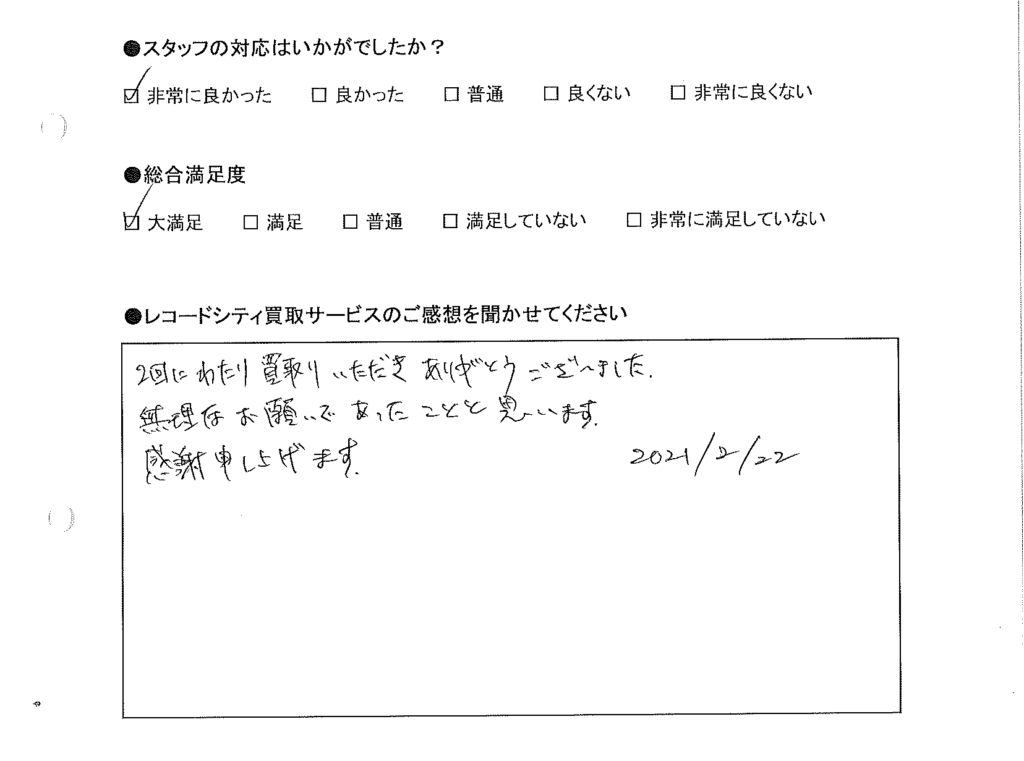 ●スタッフの対応はいかがでしたか？
☑ 非常に良かった □ 良かった □ 普通 □ 良くない □ 非常に良くない
●総合満足度
☑ 大満足 □ 満足 □ 普通 □ 満足していない □ 非常に満足していない
●レコードシティ買取サービスのご感想を聞かせてください
2回にわたり買取りいただきありがとうございました.
無理なお願いであったことと思います.
感謝申し上げます.
2021/2/22